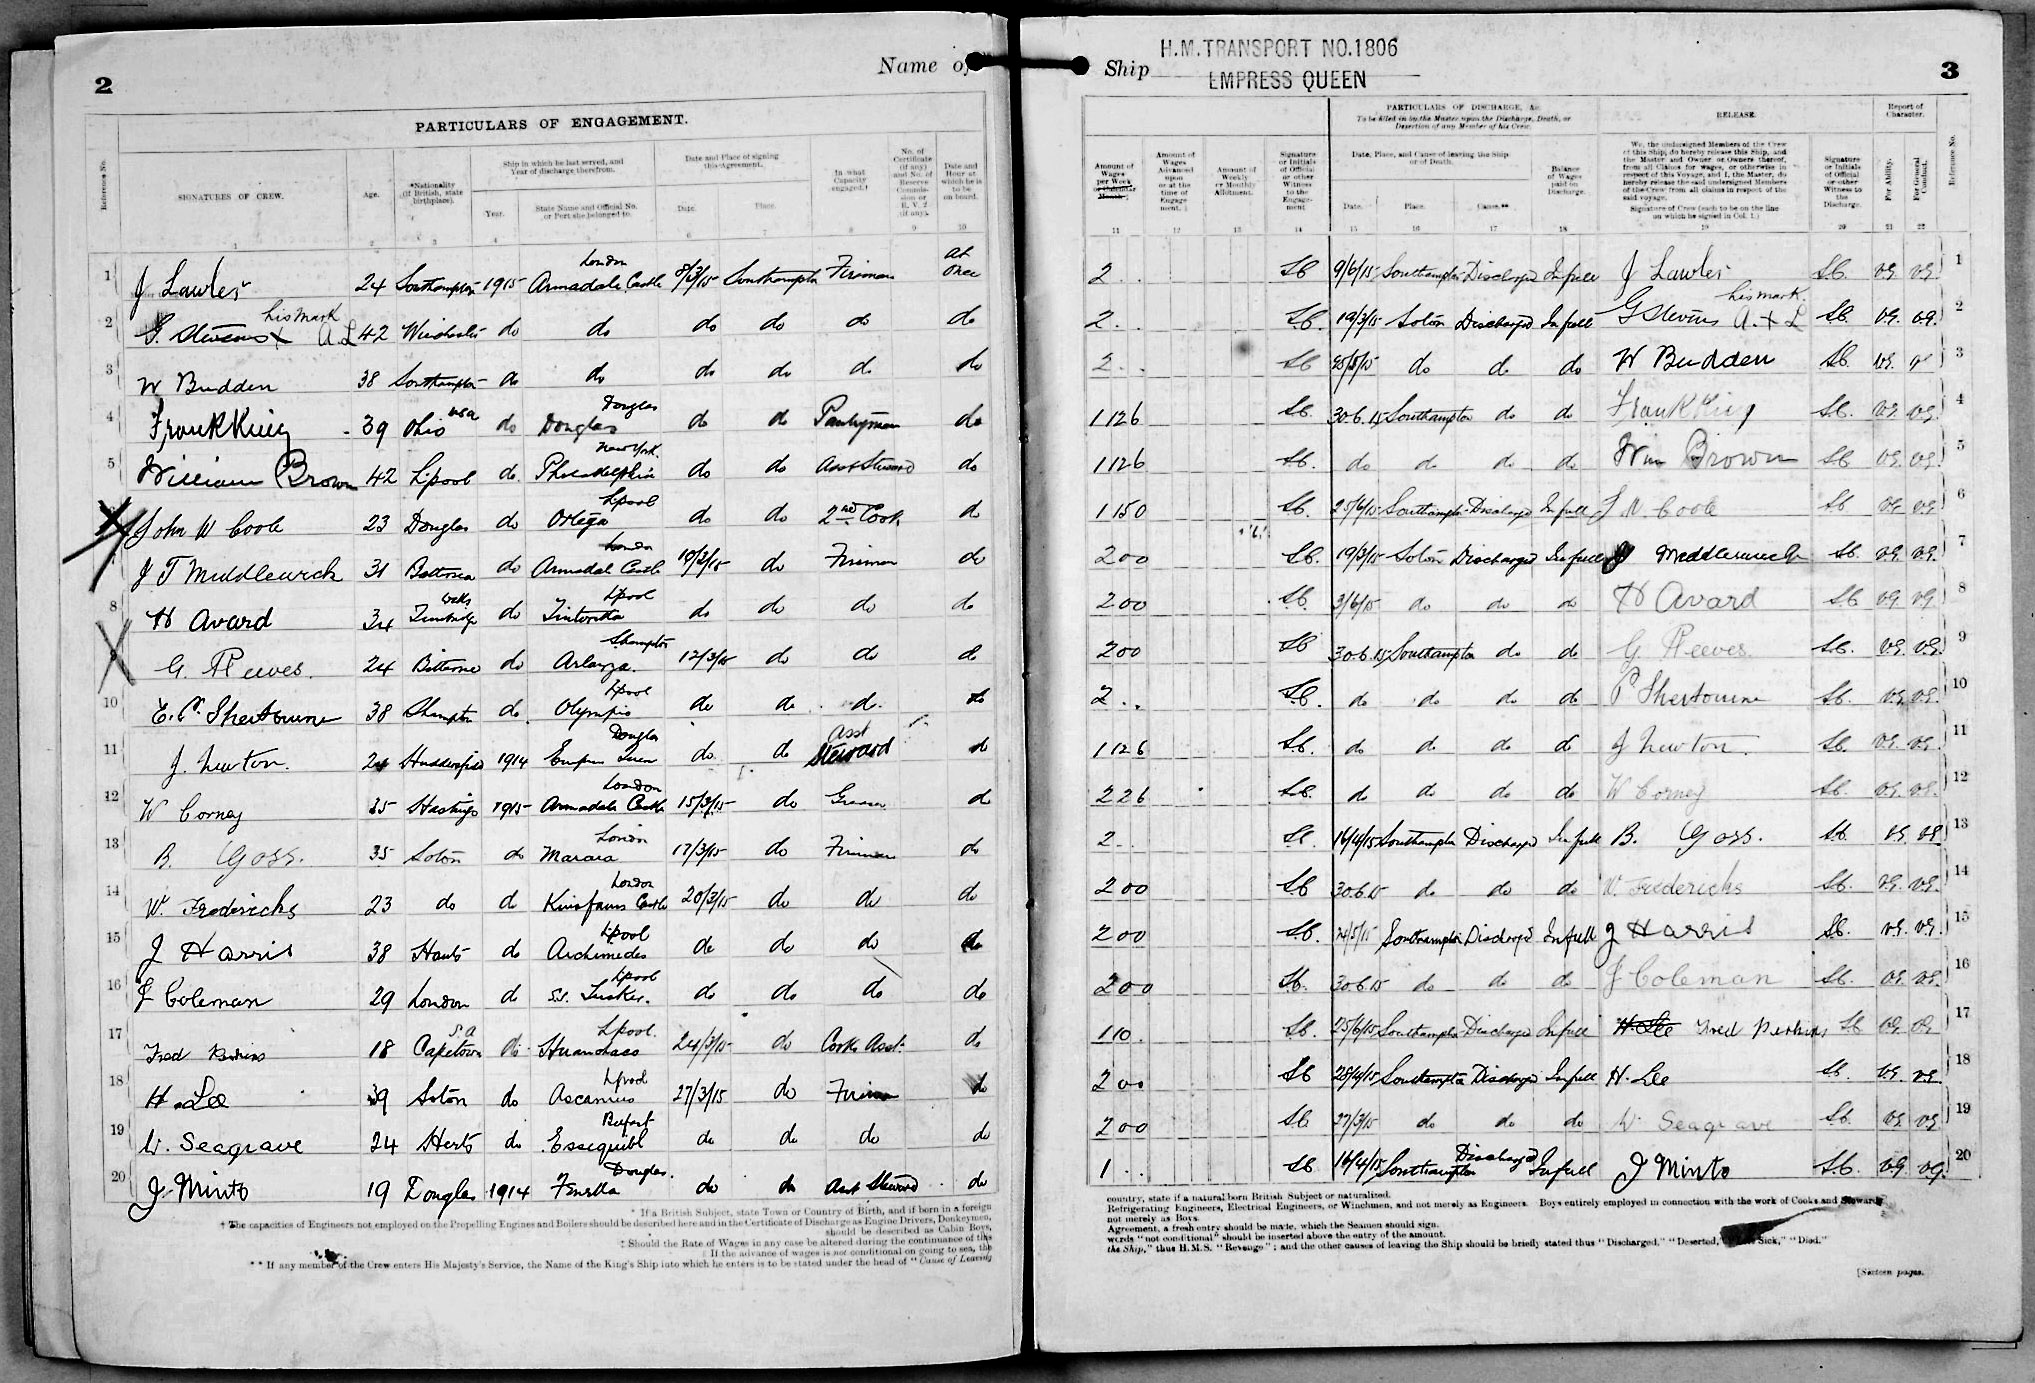 2
Name of
PARTICULARS OF ENGAGEMENT.
Reference No.
SIGNATURES OF CREW.
Age.
*Nationality (If British, state birthplace).
Ship in which he last served, and Year of discharge therefrom.
Year.
State Name and Official No. or Port she belonged to.
Date and Place of signing this Agreement.
Date.
Place.
In what Capacity engaged.†
No. of Certificate (if any) and No. of Reserve Commission or R. V. 2 (if any).
Date and Hour at which he is to be on board.
1 2 3 4 5 6 7 8 9 10
1 J Lawler 24 Southampton 1915 Armadale Castle London 8/3/15 Southampton Fireman At once
2 G. Stevens X his mark A.L 42 Winchester do do do do do do
3 W Budden 38 Southampton do do do do do do
4 Frank King 39 Ohio USA do Douglas Douglas do do Pantryman do
5 William Brown 42 Lpool do Philadelphia New York. do do Asst Steward do
John W Coole 23 Douglas do Ortega Lpool do do 2nd Cook do
J T Middlewick 31 Battersea do Armadal Castle London 10/3/15 do Fireman do
8 H Avard 34 Tunbridge Wells do Tintoretta Lpool do do do do
G. Reeves. 24 Bitterne do Arlanza. Shampton 12/3/15 do do do
10 E. P. Sherbourne 38 Shampton do Olympic Lpool do do do do
11 J. Newton. 24 Huddersfield 1914 Empress Queen Douglas do do Asst Steward do
12 W Corney 35 Hastings 1915 Armadale Castle London 15/3/15 do Greaser do
13 B. Goss. 35 Soton do London 17/3/15 do Fireman do
14 W. Fredericks 23 do do Kinfauns Castle London 20/3/15 do do do
15 J Harris 38 Hants do Archimedes Lpool do do do do
16 J Coleman 29 London do S.S. Tusker. Lpool do do do do
17 Fred Perkins 18 Capetown S.A do Huanchaco Lpool. 24/3/15 do Cooks Asst. do
18 H. Lee 39 Soton do Ascanius Lpool 27/3/15 do Fireman do
19 W. Seagrave 24 Herts do Essequibo Belfast do do do do
20 J. Minto 19 Douglas 1914 Fenella Douglas. do do Asst Steward do
* If a British Subject, state Town or Country of Birth, and if born in a foreign
† The capacities of Engineers not employed on the Propelling Engines and Boilers should be described here and in the Certificate of Discharge as Engine Drivers, Donkeymen,
should be described as Cabin Boys,
‡ Should the Rate of Wages in any case be altered during the continuance of this
If the advance of wages is not conditional on going to sea, the
** If any member of the Crew enters His Majesty's Service, the Name of the King's Ship into which he enters is to be stated under the head of "Cause of Leaving
Ship
H.M. TRANSPORT NO.1806
EMPRESS QUEEN
3
PARTICULARS OF DISCHARGE, &c.
To be filled in by the Master upon the Discharge, Death, or Desertion of any Member of his Crew.
RELEASE.
Report of Character.
Amount of Wages per Week or Calendar Month.
Amount of Wages Advanced upon or at the time of Engagement.
Amount of Weekly or Monthly Allotment.
Signature or Initials of Official or other Witness to the Engagement
Date, Place, and Cause of leaving the Ship or of Death.
Date.
Place.
Cause.**
Balance of Wages paid on Discharge.
We, the undersigned Members of the Crew of this Ship, do hereby release this Ship, and the Master and Owner or Owners thereof, from all Claims for wages, or otherwise in respect of this Voyage, and I, the Master, do hereby release the said undersigned Members of the Crew from all claims in respect of the said voyage.
Signature of Crew (each to be on the line on which he signed in Col. 1.)
Signature or Initials of Official or other Witness to the Discharge.
For Ability.
For General Conduct.
Reference No.
11 12 13 14 15 16 17 18 19 20 21 22
2 . . 9/6/15 Southampton Discharged In full J Lawler VG. VG. 1
2 . . 19/3/15 Soton Discharged In full G Stevens his mark. A. X L VG. VG. 2
2 . . do do do W Budden VG. 3
1 12 6 30.6.15 Southampton do do Frank King VG. VG. 4
1 12 6 do do do do Wm Brown VG. VG. 5
1 15 0 25/6/15 Southampton Discharged In full J W. Coole VG VG. 6
2 0 0 19/3/15 Soton Discharged In full Middlewick VG. VG. 7
2 0 0 3/6/15 do do do H Avard VG. VG. 8
2 0 0 30.6.15 Southampton do do G Reeves. VG. VG. 9
2 . . do do do do P Sherbourne VG. VG. 10
1 12 6 do do do do J Newton. VG. VG. 11
2 2 6 do do do do W Corney VG. VG. 12
2 . . 16/4/15 Southampton Discharged In full B. Goss. VG VG 13
2 0 0 30.6.15 do do do W. Fredericks VG. VG. 14
2 0 0 24/5/15 Southampton Discharged In full J Harris VG. VG. 15
2 0 0 30.6.15 do do do J Coleman VG. VG. 16
1 10 . 25/6/15 Southampton Discharged In full H. Lee Fred Perkins VG. VG 17
2 0 0 28/4/15 Southampton Discharged In full H. Lee VG. VG. 18
2 0 0 27/3/15 do do do W Seagrave VG. VG. 19
1 . . 16/4/15 Southampton Discharged In full J Minto VG. VG. 20
country, state if a natural born British Subject or naturalized.
Refrigerating Engineers, Electrical Engineers, or Winchmen, and not merely as Engineers. Boys entirely employed in connection with the work of Cooks and Stewards
not merely as Boys.
Agreement, a fresh entry should be made, which the Seamen should sign.
words "not conditional" should be inserted above the entry of the amount.
the Ship," thus H.M.S. "Revenge"; and the other causes of leaving the Ship should be briefly stated thus "Discharged," "Deserted," Sick," "Died."
[Sixteen pages.